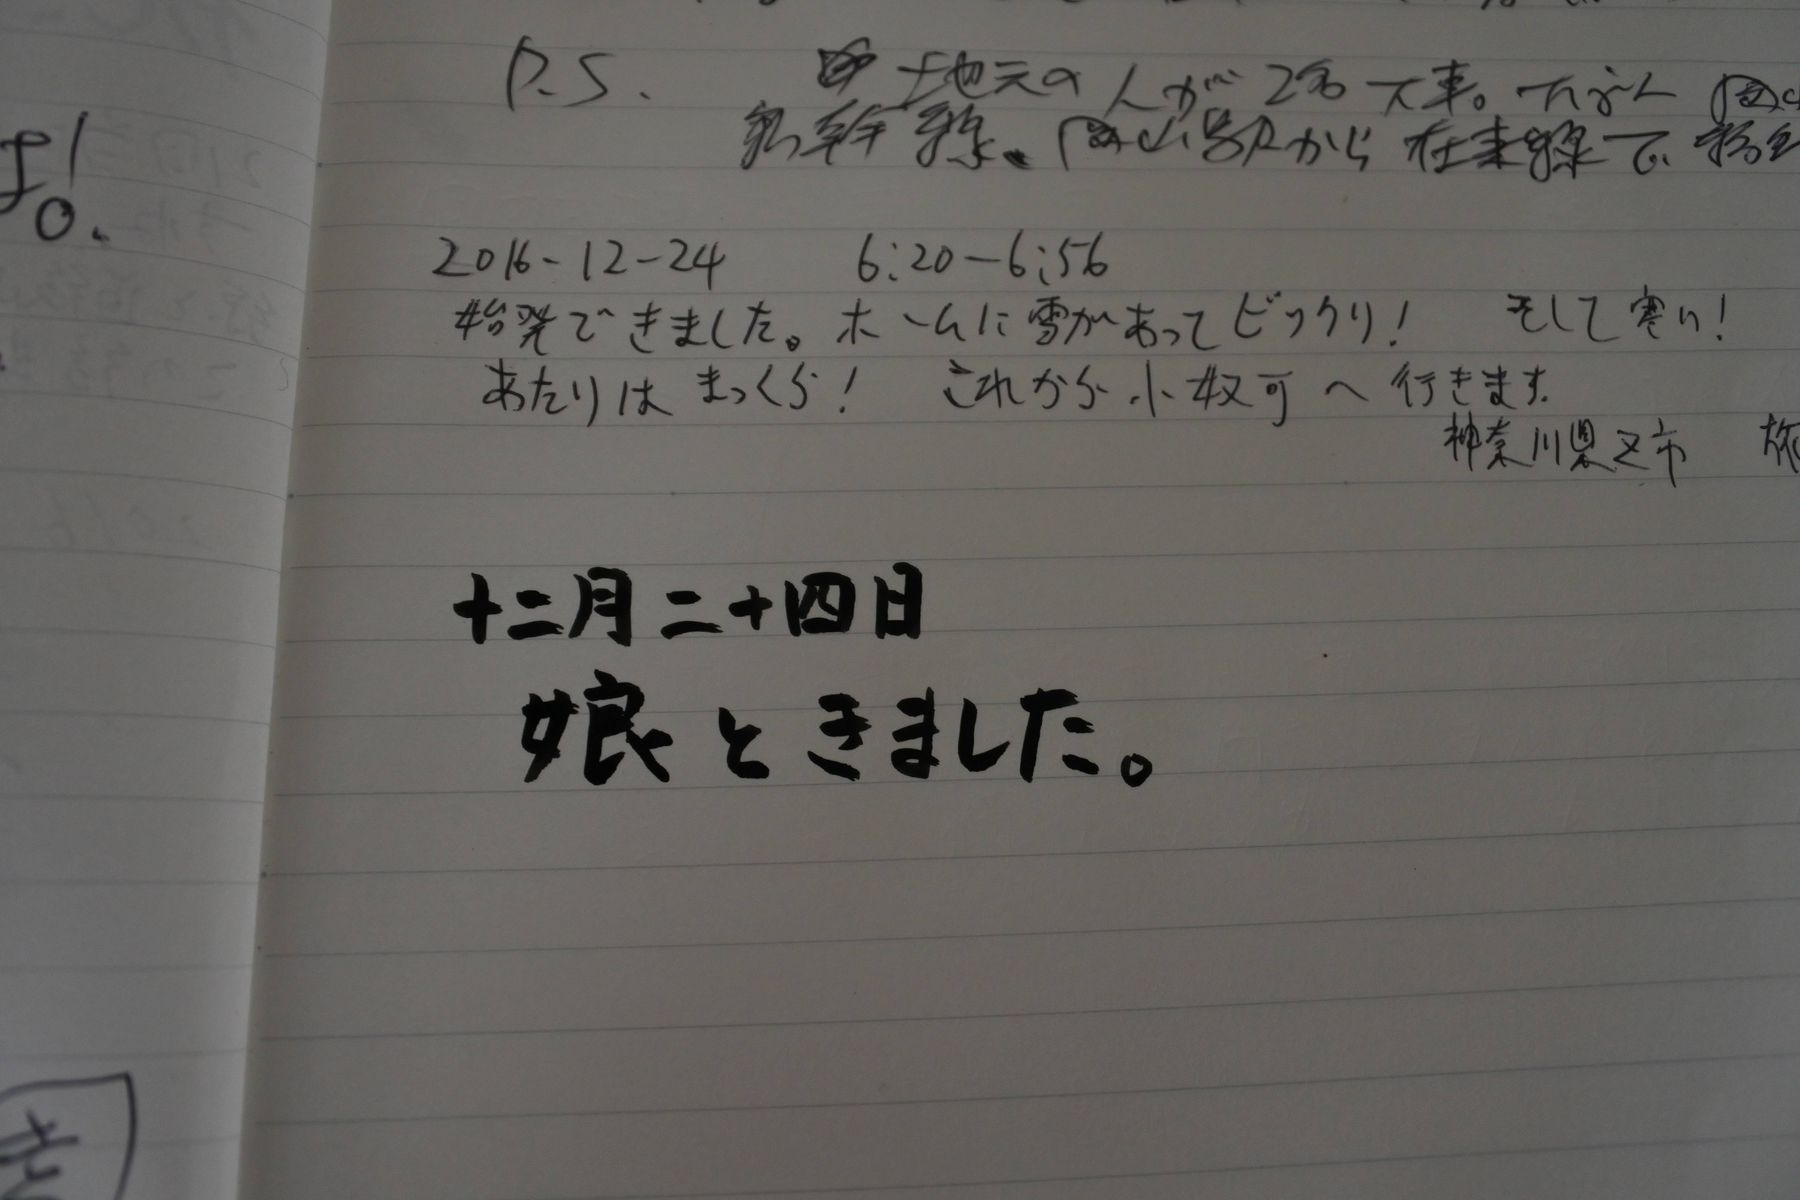 P.S. 地元の人が2名下車。たぶん岡山
新幹線。岡山駅から在来線で、
2016-12-24 6:20-6:56
始発できました。ホームに雪があってビックリ! そして寒い!
あたりはまっくら! これから小奴可へ行きます
神奈川県Z市 旅
十二月二十四日
娘ときました。